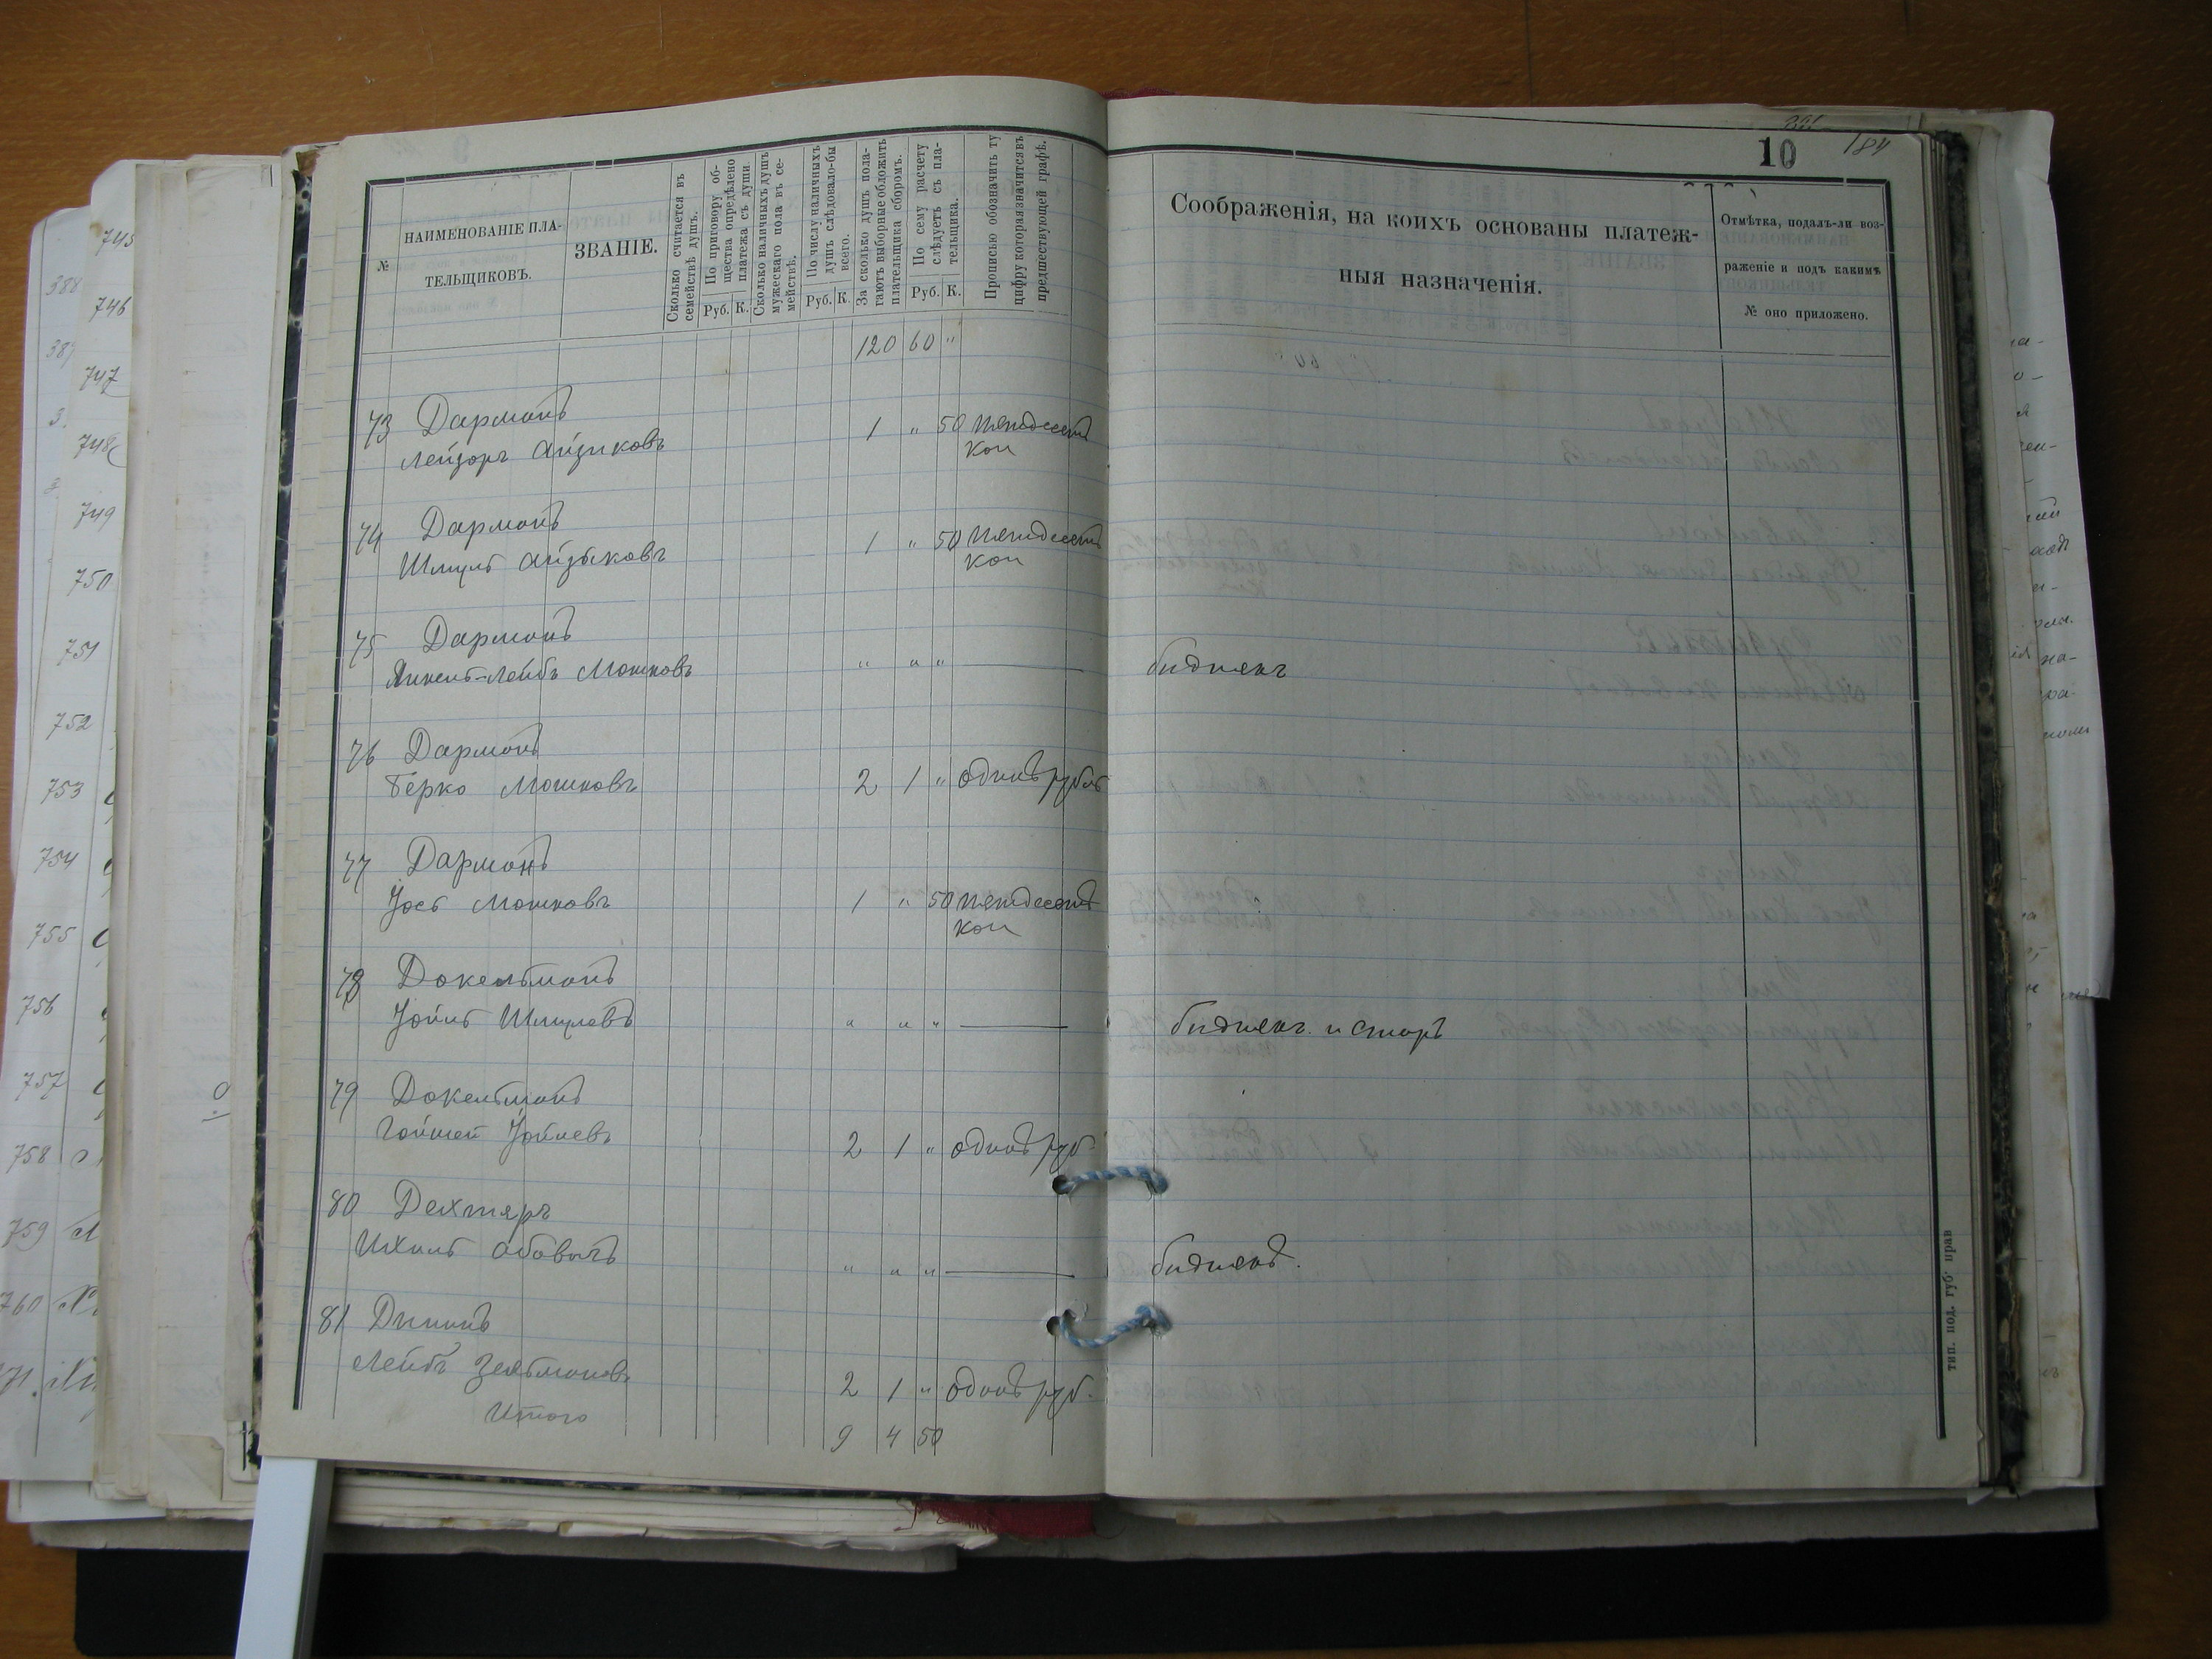 10 184
№
НАИМЕНОВАНІЕ ПЛА-
ТЕЛЬЩИКОВЪ.
ЗВАНІЕ.
Сколько считается въ
семействѣ душъ.
По приговору об-
щества опредѣлено
платежа съ души.
Руб. К.
Сколько наличныхъ душъ
мужескаго пола въ се-
мействѣ.
По числу наличныхъ
душъ слѣдовало-бы
всего.
Руб. К.
За сколько душъ пола-
гаютъ выборные обложить
плательщика сборомъ.
По сему расчету
слѣдуетъ съ пла-
тельщика.
Руб. К.
Прописью обозначить ту
цифру которая значится въ
предшествующей графѣ.
Соображенія, на коихъ основаны платеж-
ныя назначенія.
Отмѣтка, подалъ-ли воз-
раженіе и подъ какимъ
№ оно приложено.
120 60 "
73 Дармонъ
Лейзоръ Айзиковъ 1 " 50 пятдесятъ
коп
74 Дармонъ
Шмуль Айзиковъ 1 " 50 пятдесятъ
коп
75 Дармонъ
Янкель-Лейбъ Мошковъ " " " биднякъ
76 Дармонъ
Берко Мошковъ 2 1 " одинъ рубль
77 Дармонъ
Іось Мошковъ 1 " 50 пятдесятъ
коп
78 Докельманъ
Іойль Шмулевъ " " " биднякъ и старъ
79 Докельманъ
Іойлевъ 2 1 " одинъ руб.
80 Дехтяръ
Ихиль " " " биднякъ.
81
Лейбъ Зельмановъ 2 1 " одинъ руб.
Итого 9 4 50
тип. под. губ. прав
745
746
747
748
749
750
751
752
753
754
755
756
757
758
759
760